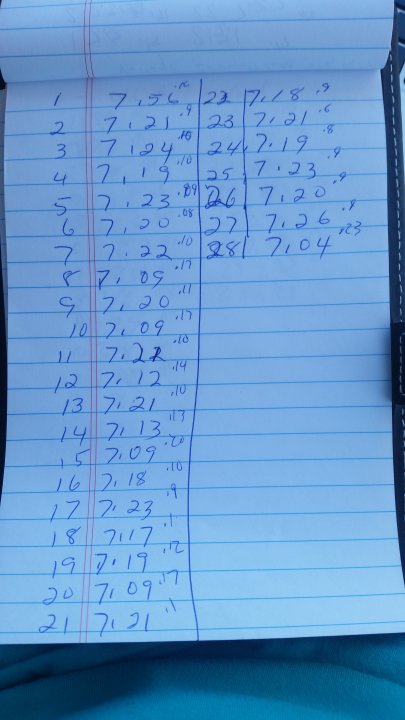 1 7.56
2 7.21 .9
3 7.24 .10
4 7.19 .10
5 7.23 .09
6 7.20 .08
7 7.22 .10
8 7.09 .17
9 7.20 .11
10 7.09 .17
11 7.22 .10
12 7.12 .14
13 7.21 .10
14 7.13 .13
15 7.09 .20
16 7.18 .10
17 7.23 .9
18 7.17 .1
19 7.19 .12
20 7.09 .17
21 7.21 .1
22 7.18 .9
23 7.21 .6
24 7.19 .8
25 7.23 .9
26 7.20 .9
27 7.26 .9
28 7.04 .23